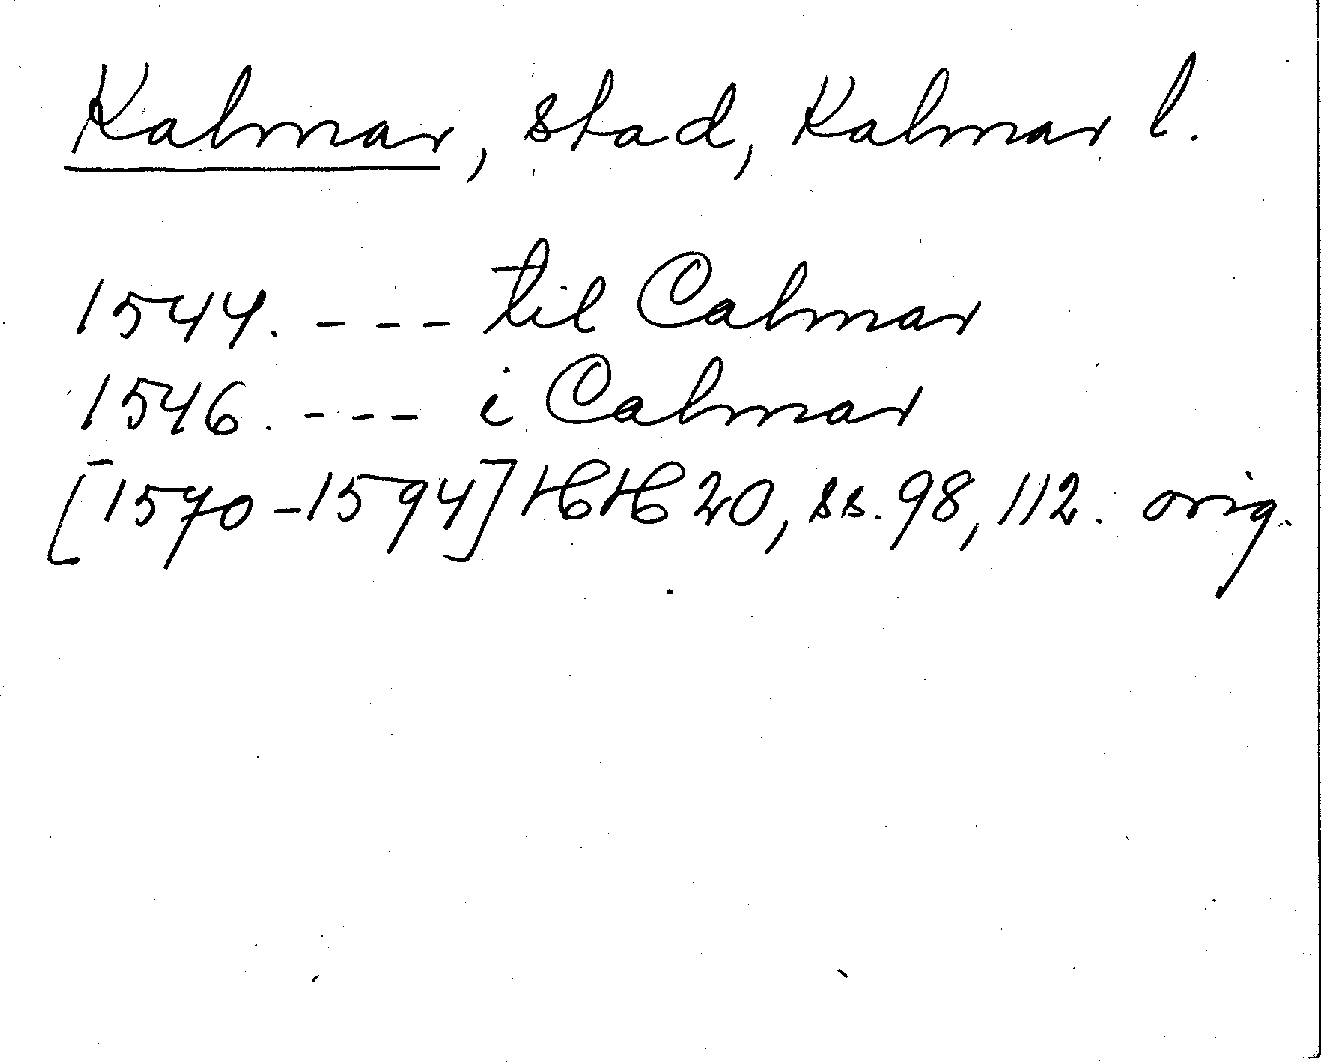 Kalmar, stad, Kalmar l.
1544. --- til Calmar
1546. --- i Calmar
[1570-1594] HH 20, ss. 98, 112. orig.